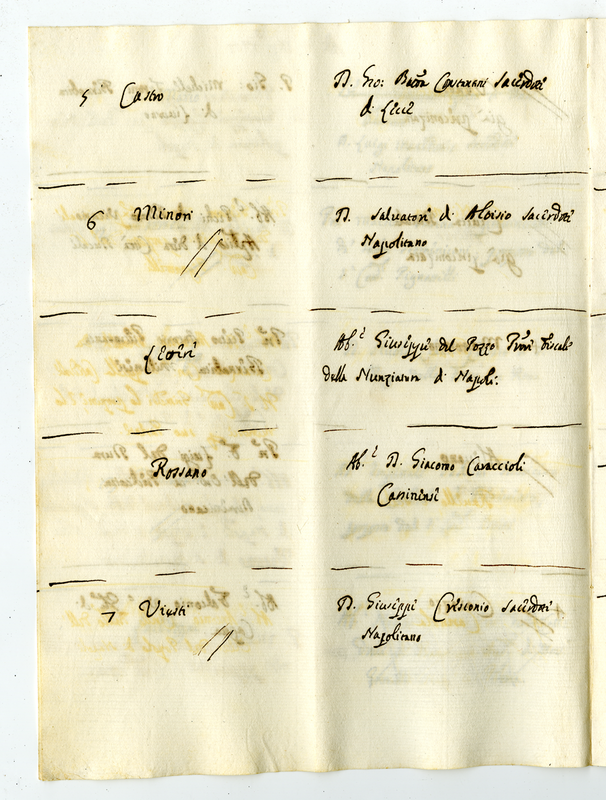 5 Castro
D. Gio: Batta Costantini Sacerdote
di Lecce
6 Minori
D. Salvatore di Aloisio Sacerdote
Napolitano
Ab.e Giuseppe del Pozzo Fiscale
della Nunziatura di Napoli.
Rossano
Ab.e D. Giacomo Caraccioli
Cassinense
7 Viesti
D. Giuseppe Crisconio Sacerdote
Napolitano